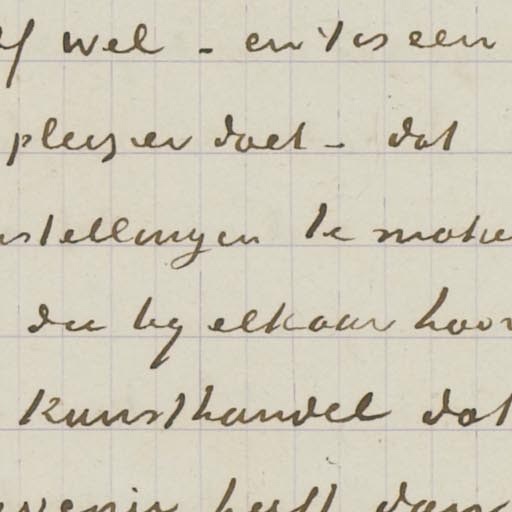 wel - en 't is een
pleizier doet - dat
stellingen te make
die by elkaar hoor
Kunsthandel dat
heeft dan